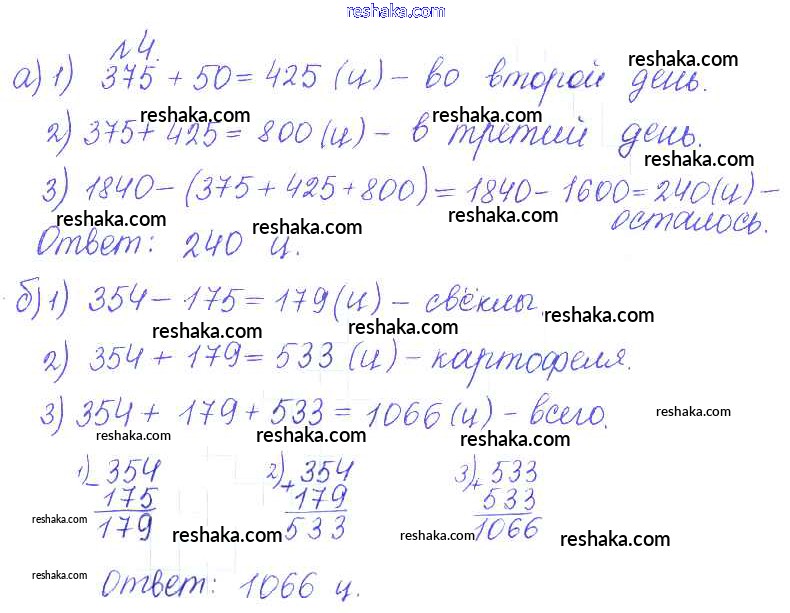 reshaka.com
№4.
а) 1) 375 + 50 = 425 (ц) – во второй день.
reshaka.com
reshaka.com
2) 375 + 425 = 800 (ц) – в третий день.
reshaka.com
reshaka.com
3) 1840 – (375 + 425 + 800) = 1840 – 1600 = 240 (ц) –
осталось.
reshaka.com reshaka.com reshaka.com
Ответ: 240 ц.
б) 1) 354 – 175 = 179 (ц) – свёклы.
reshaka.com reshaka.com reshaka.com
2) 354 + 179 = 533 (ц) – картофеля.
3) 354 + 179 + 533 = 1066 (ц) – всего.
reshaka.com
reshaka.com reshaka.com reshaka.com
1) – 354 2) + 354 3) + 533
175 179 533
179 533 1066
reshaka.com reshaka.com reshaka.com reshaka.com
reshaka.com
Ответ: 1066 ц.